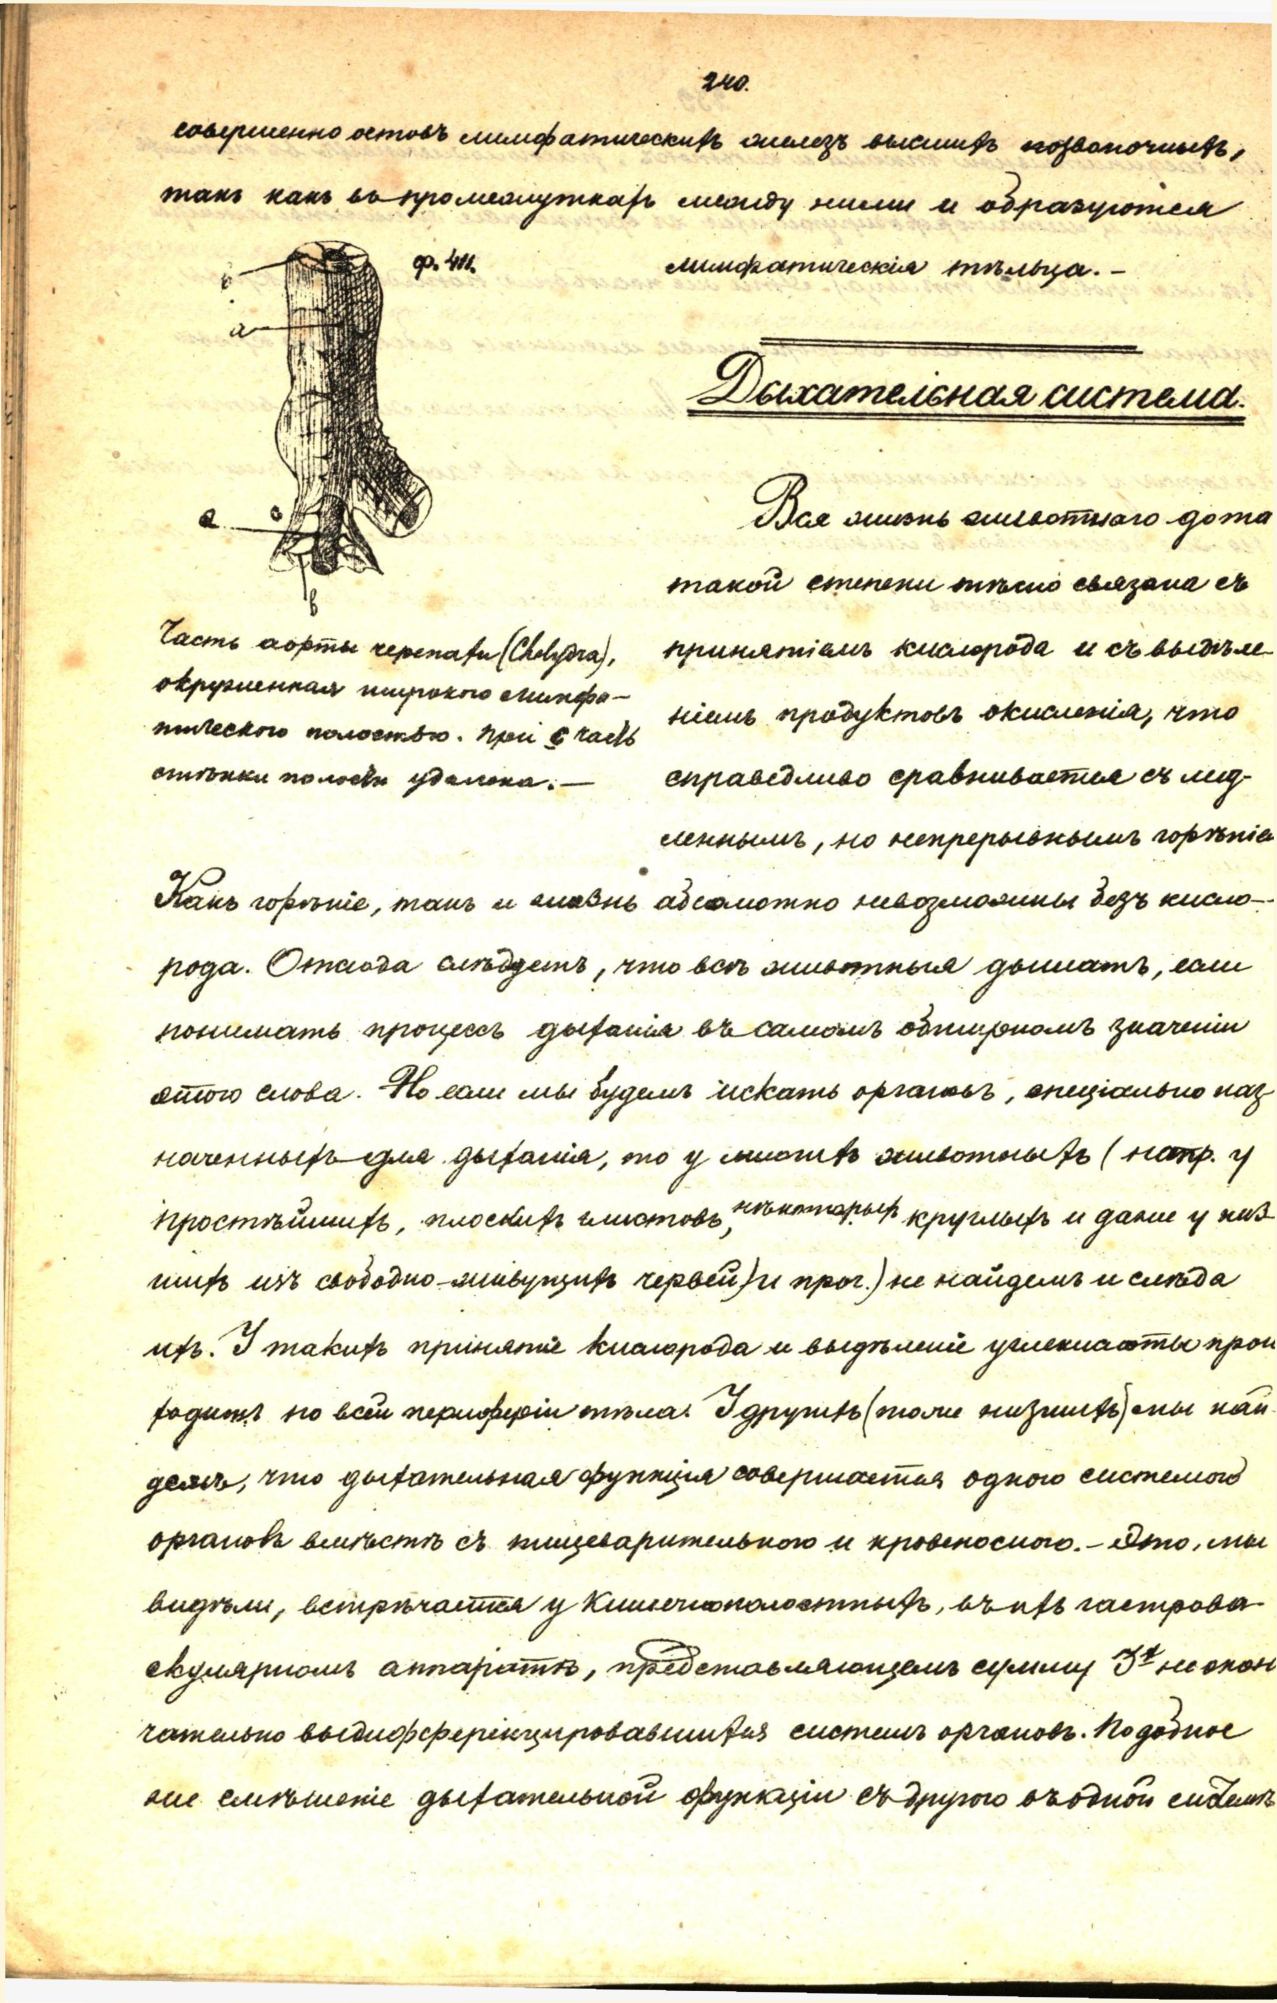 240.
совершенно остовъ лимфатическихъ железъ высшихъ позвоночныхъ,
такъ какъ въ промежуткахъ между ними и образуются
лимфатическія тѣльца. —
ф. 411.
в
a
a
c
в
Часть аорты черепахи (Chelydra),
окруженная широкою лимфа-
тическою полостью. При c часть
стѣнки полости удалена. —
Дыхательная система.
Вся жизнь животнаго до та
такой степени тѣсно связана съ
принятіемъ кислорода и съ выдѣле
ніемъ продуктовъ окисленія, что
справедливо сравнивается съ мед-
леннымъ, но непрерывнымъ горѣніе
Какъ горѣніе, такъ и жизнь абсолютно невозможны безъ кисло-
рода. Отсюда слѣдуетъ, что всѣ животныя дышатъ, если
понимать процессъ дыханія въ самомъ обширномъ значеніи
этого слова. Но если мы будемъ искать органовъ, спеціально наз
наченныхъ для дыханія, то у многихъ животныхъ (напр. у
простѣйшихъ, плоскихъ глистовъ, нѣкоторыхъ круглыхъ и даже у низ
шихъ изъ свободно-живущихъ червей) и проч.) не найдемъ и слѣда
ихъ. У такихъ принятіе кислорода и выдѣленіе углекислоты прои
ходитъ по всей периферіи тѣла. У другихъ (тоже низшихъ) мы най
демъ, что дыхательная функція совершается одною системою
органовъ вмѣстѣ съ пищеварительною и кровеносною. — Это, мы
видѣли, встрѣчается у Кишечнополостныхъ, въ ихъ гастрова-
скулярномъ аппаратѣ, представляющемъ сумму 3х не окон
чательно выдифференцировавшихся системъ органовъ. Подобное
же смѣшеніе дыхательной функціи съ другою въ одной системѣ